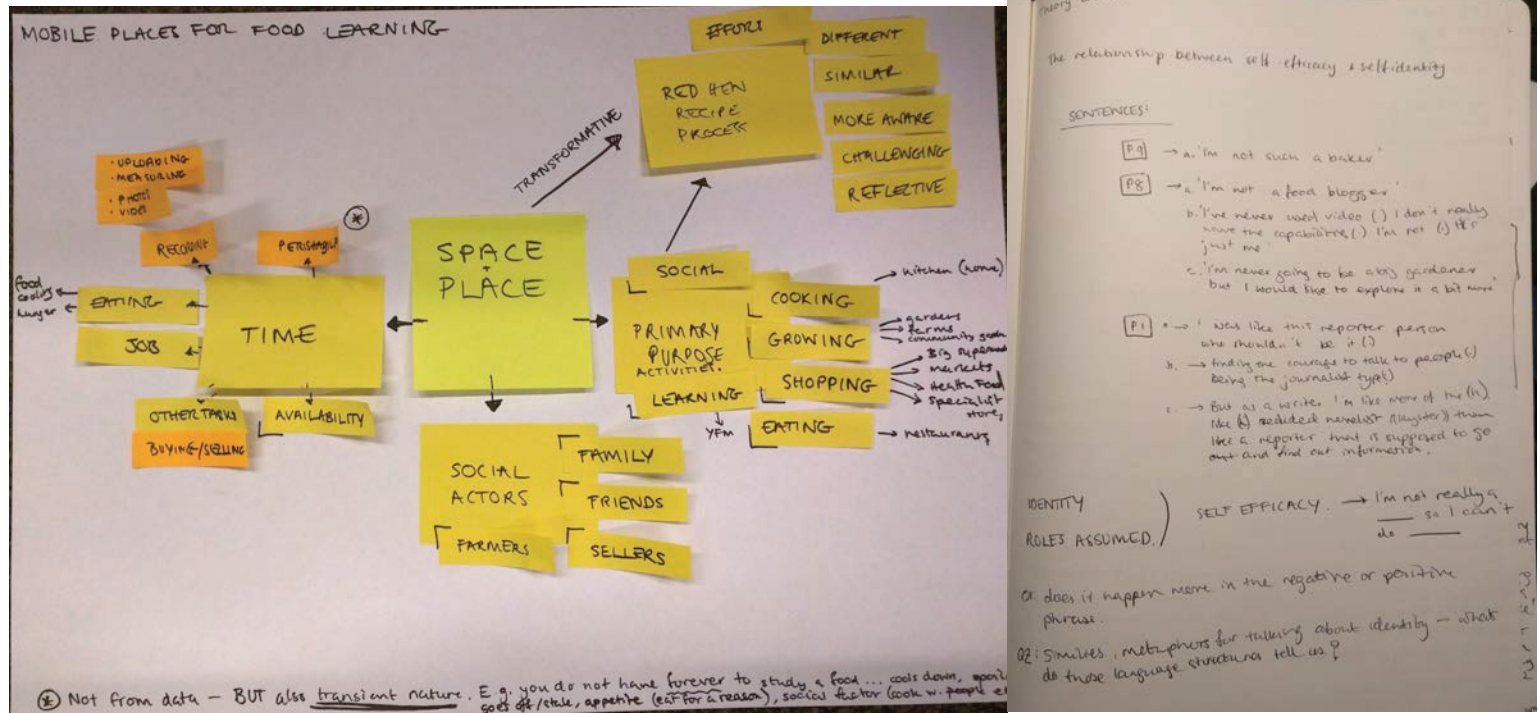 MOBILE PLACES FOR FOOD LEARNING
EFFORT
DIFFERENT
SIMILAR
MORE AWARE
CHALLENGING
REFLECTIVE
RED HEN
RECIPE
PROCESS
TRANSFORMATIVE
• UPLOADING
• MEASURING
• PHOTOS
• VIDEO
RECORDING
PERISHABILI
food
cooling
hunger
EATING
JOB
TIME
OTHER TASKS
BUYING/SELLING
AVAILABILITY
SPACE
+
PLACE
SOCIAL
PRIMARY
PURPOSE
ACTIVITIES.
LEARNING
YFM
COOKING
kitchen (home)
GROWING
gardens
farms
community
SHOPPING
Big
markets
Health Food
specialist
stores
EATING
restaurants
SOCIAL
ACTORS
FAMILY
FRIENDS
FARMERS
SELLERS
* Not from data — BUT also transient nature. E.g. you do not have forever to study a food ... cools down,
goes off/stale, appetite (eat for a reason), social factor (cook w. people
theory
The relationship between self-efficacy & self identity
SENTENCES:
P9 → a. 'I'm not such a baker'
P8 → a. 'I'm not a food blogger'
b. 'I've never used video () I don't really
have the capabilities () I'm not (.)
just me'
c. 'I'm never going to be a big gardener
but I would like to explore it a bit more'
P1 a → I was like this reporter person
who shouldn't be it ()
b. → finding the courage to talk to people (.)
being the journalist type)
c. → But as a writer I'm like more of the (h)
like (h) secluded novelist ((laughter)) then
like a reporter that is supposed to go
out and find out information.
IDENTITY
ROLES ASSUMED.
SELF EFFICACY. → I'm not really a
____ so I can't
do ____
does it happen more in the negative or positive
phrase.
Q2: Similes, metaphors for talking about identity — what
do those language structures tell us?